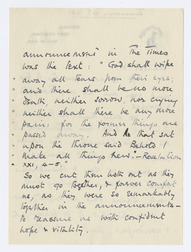 announcement in The Times
was the text: "God shall wipe
away all tears from their eyes;
and there shall be no more
death, neither sorrow nor crying
neither shall there be any more
pain: for the former things are
passed away. And he that sat
upon the throne said Behold I
make all things new. - Revelation
XXI, 4-5"
So we cut them both out as they
must go together, & forever comfort
me, as they were so remarkably
together in the announcements -
to reassure me with confident
hope & vitality.